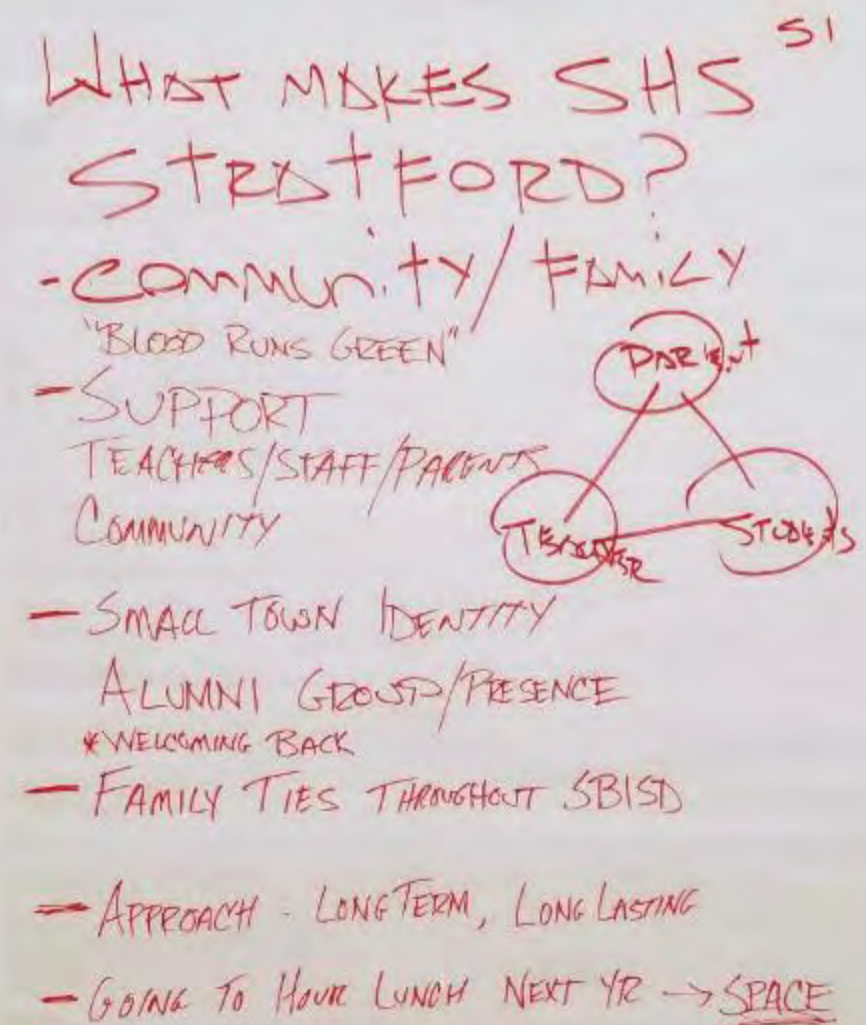 S1
WHAT MAKES SHS
STRATFORD?
- COMMUNITY / FAMILY
"BLOOD RUNS GREEN"
PARENT
- SUPPORT
TEACHERS/STAFF/PARENTS
COMMUNITY
TEACHER
STUDENTS
- SMALL TOWN IDENTITY
ALUMNI GROUP/PRESENCE
* WELCOMING BACK
- FAMILY TIES THROUGHOUT SBISD
- APPROACH - LONG TERM, LONG LASTING
- GOING TO HOUR LUNCH NEXT YR → SPACE